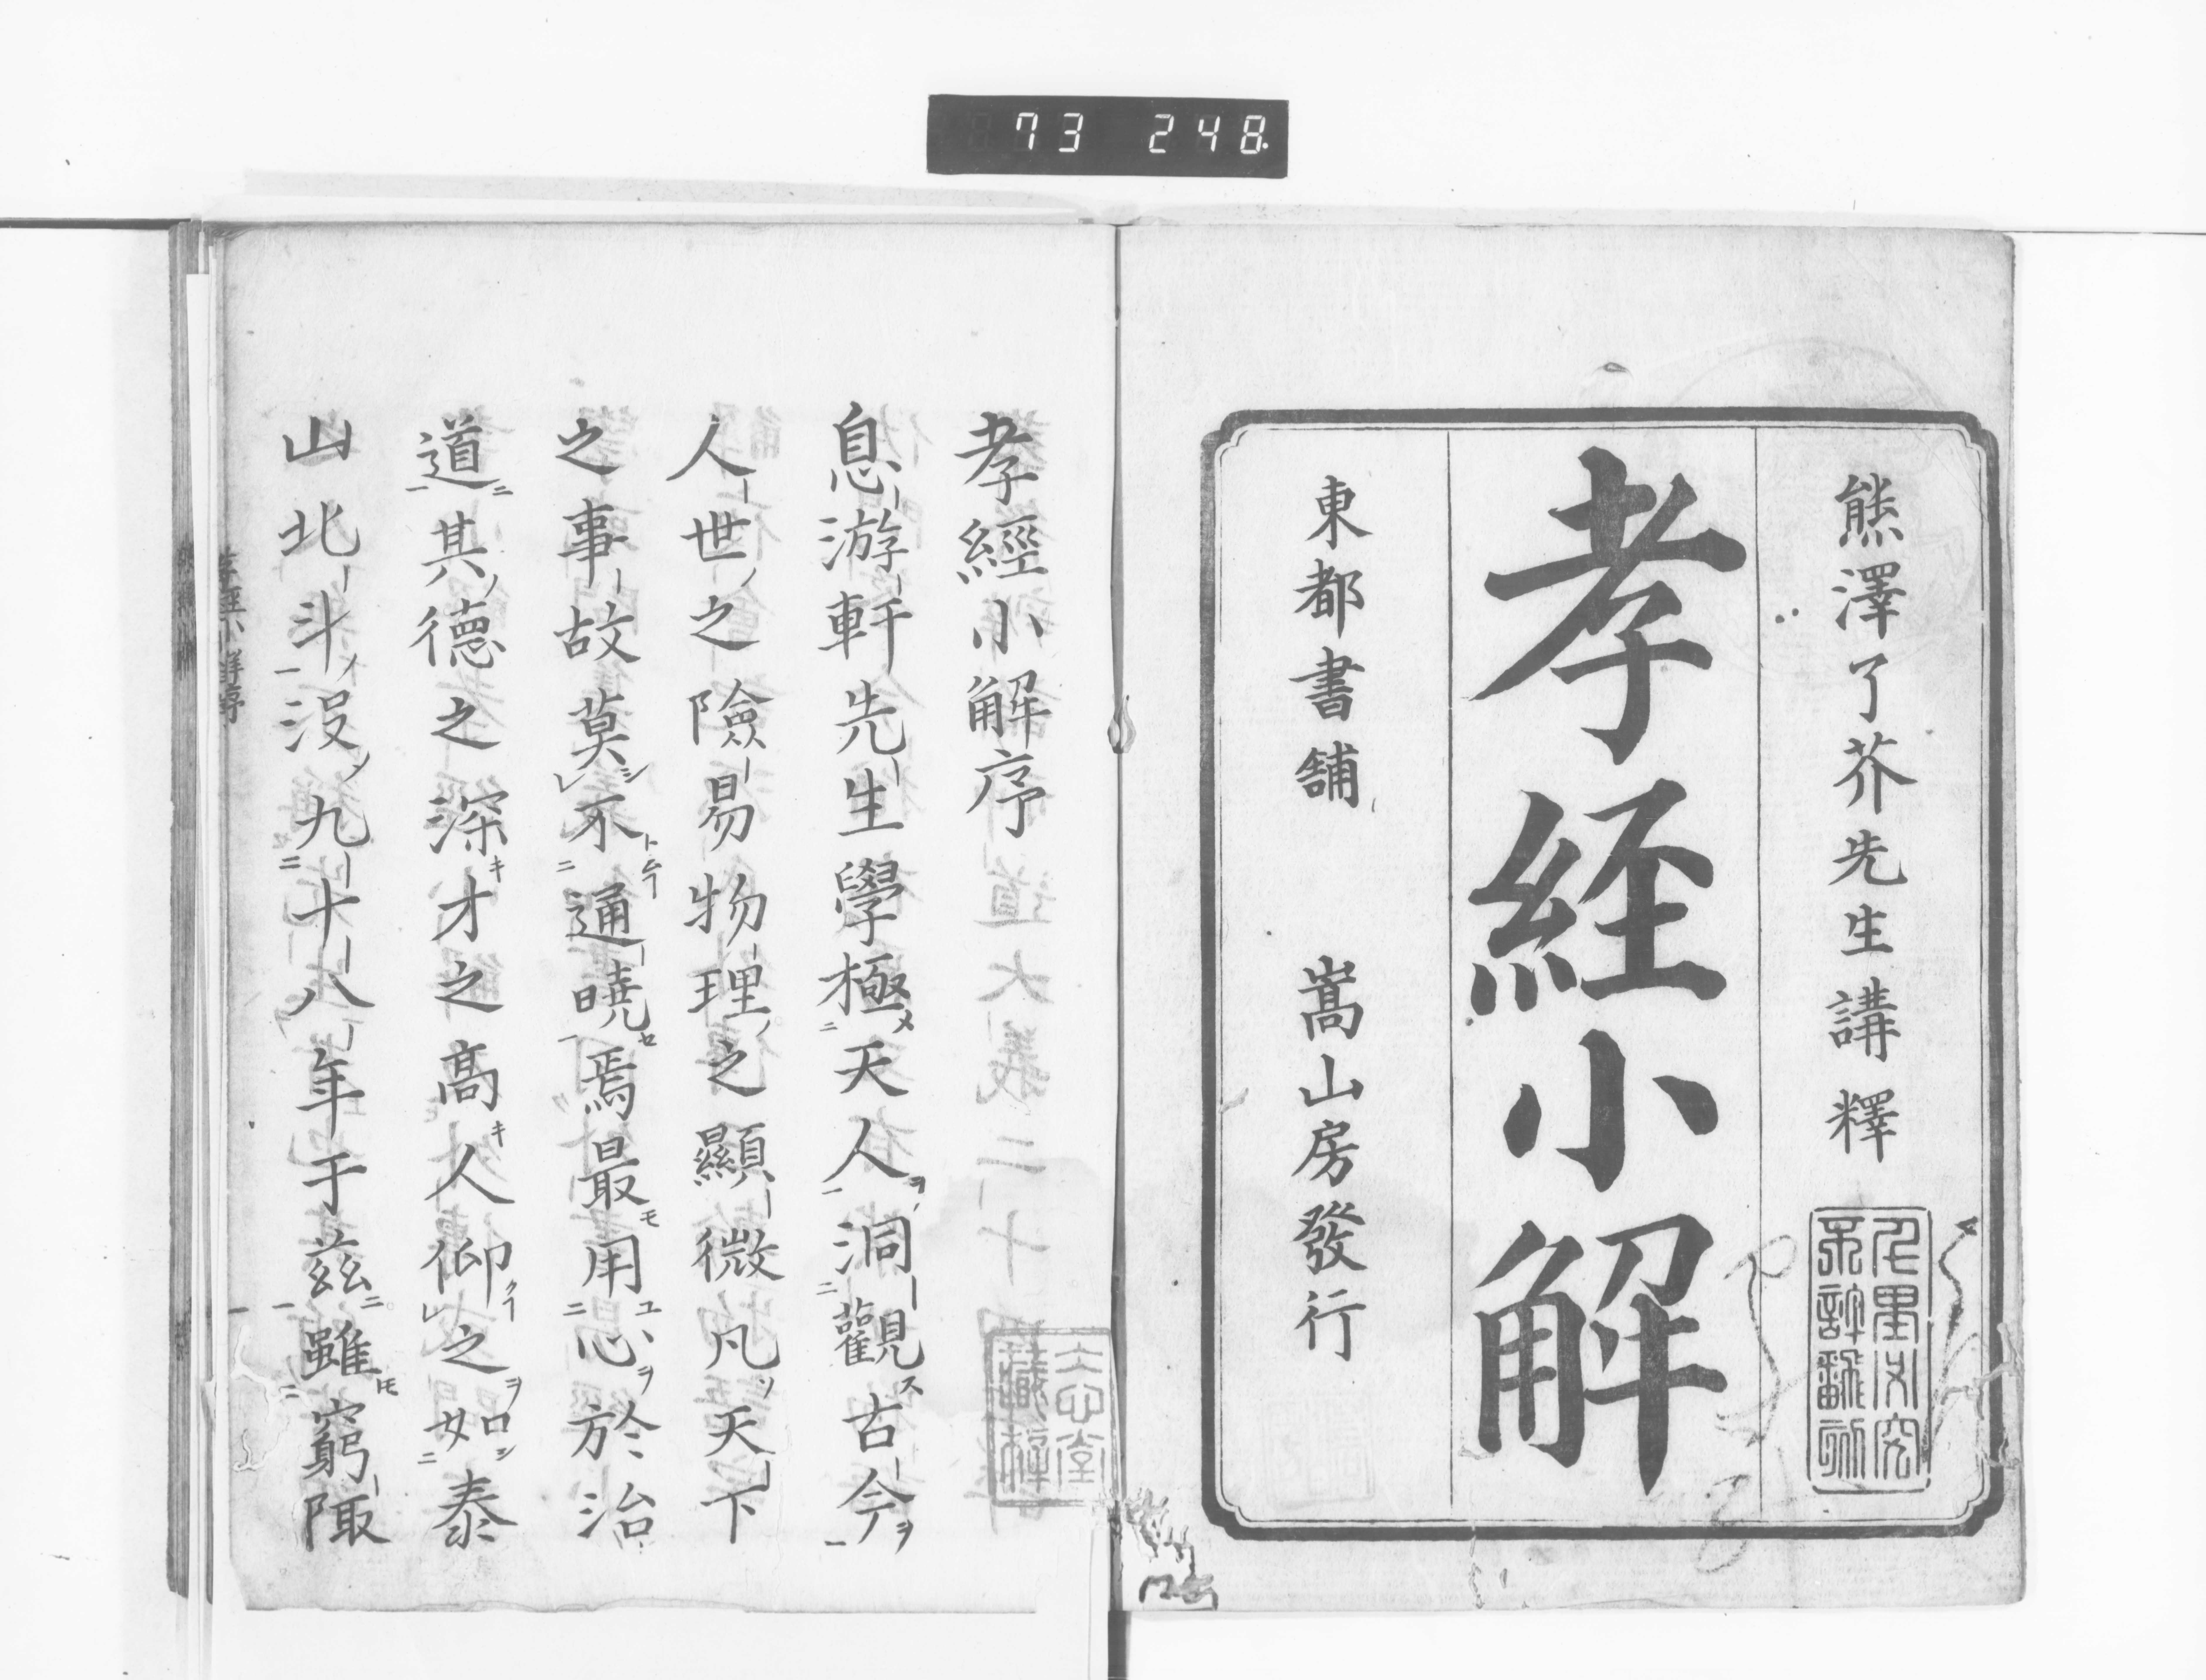 73 248
熊澤了芥先生講釋
孝経小解
東都書舗 嵩山房發行
孝經小解序
息游軒先生學極天人洞觀古今
人世之險易物理之顯微凡天下
之事故莫不通曉焉最用心於治
道其德之深才之高人仰之如泰
山北斗沒九十八年于茲雖窮陬